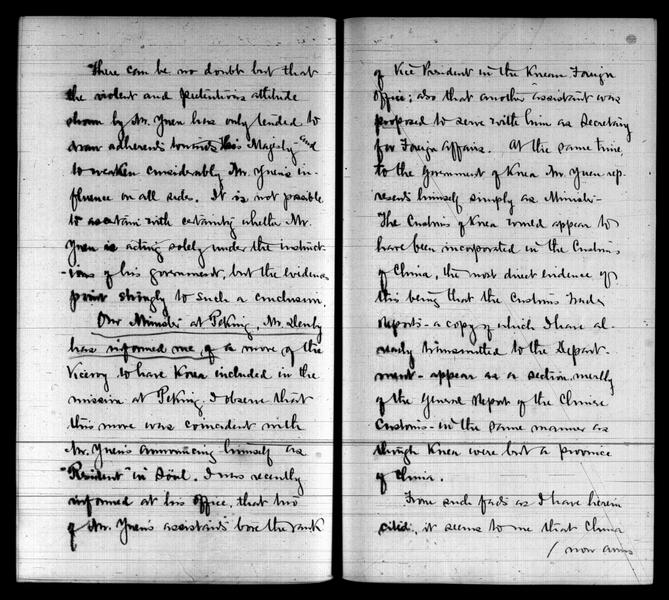 There can be no doubt but that
the violent and pretentious attitude
shown by Mr. Yuen has only tended to
draw adherents towards His Majesty and
to weaken considerably Mr. Yuen's in-
fluence on all sides. It is not possible
to ascertain with certainty whether Mr.
Yuen is acting solely under the instruct-
-ions of his government, but the evidences
point strongly to such a conclusion.
Our Minister at Peking, Mr. Denby
has informed me of a move of the
Viceroy to have Korea included in the
mission at Peking. I observe that
this move was coincident with
Mr. Yuen's announcing himself as
"Resident" in Söul. I was recently
informed at his office, that two
of Mr. Yuen's assistants bore the rank
of Vice President in the Korean Foreign
Office; also that another assistant was
proposed to serve with him as Secretary
for Foreign affairs. At the same time,
to the Government of Korea Mr. Yuen rep-
resents himself simply as Minister-
The Customs of Korea would appear to
have been incorporated in the Customs
of China, the most direct evidence of
this being that the Customs Trade
Reports - a copy of which I have al-
ready transmitted to the Depart-
ment - appear as a section merely
of the General Report of the Chinese
Customs - in the same manner as
though Korea were but a province
of China.
From such facts as I have herein
cited, it seems to me that China
/ now aims